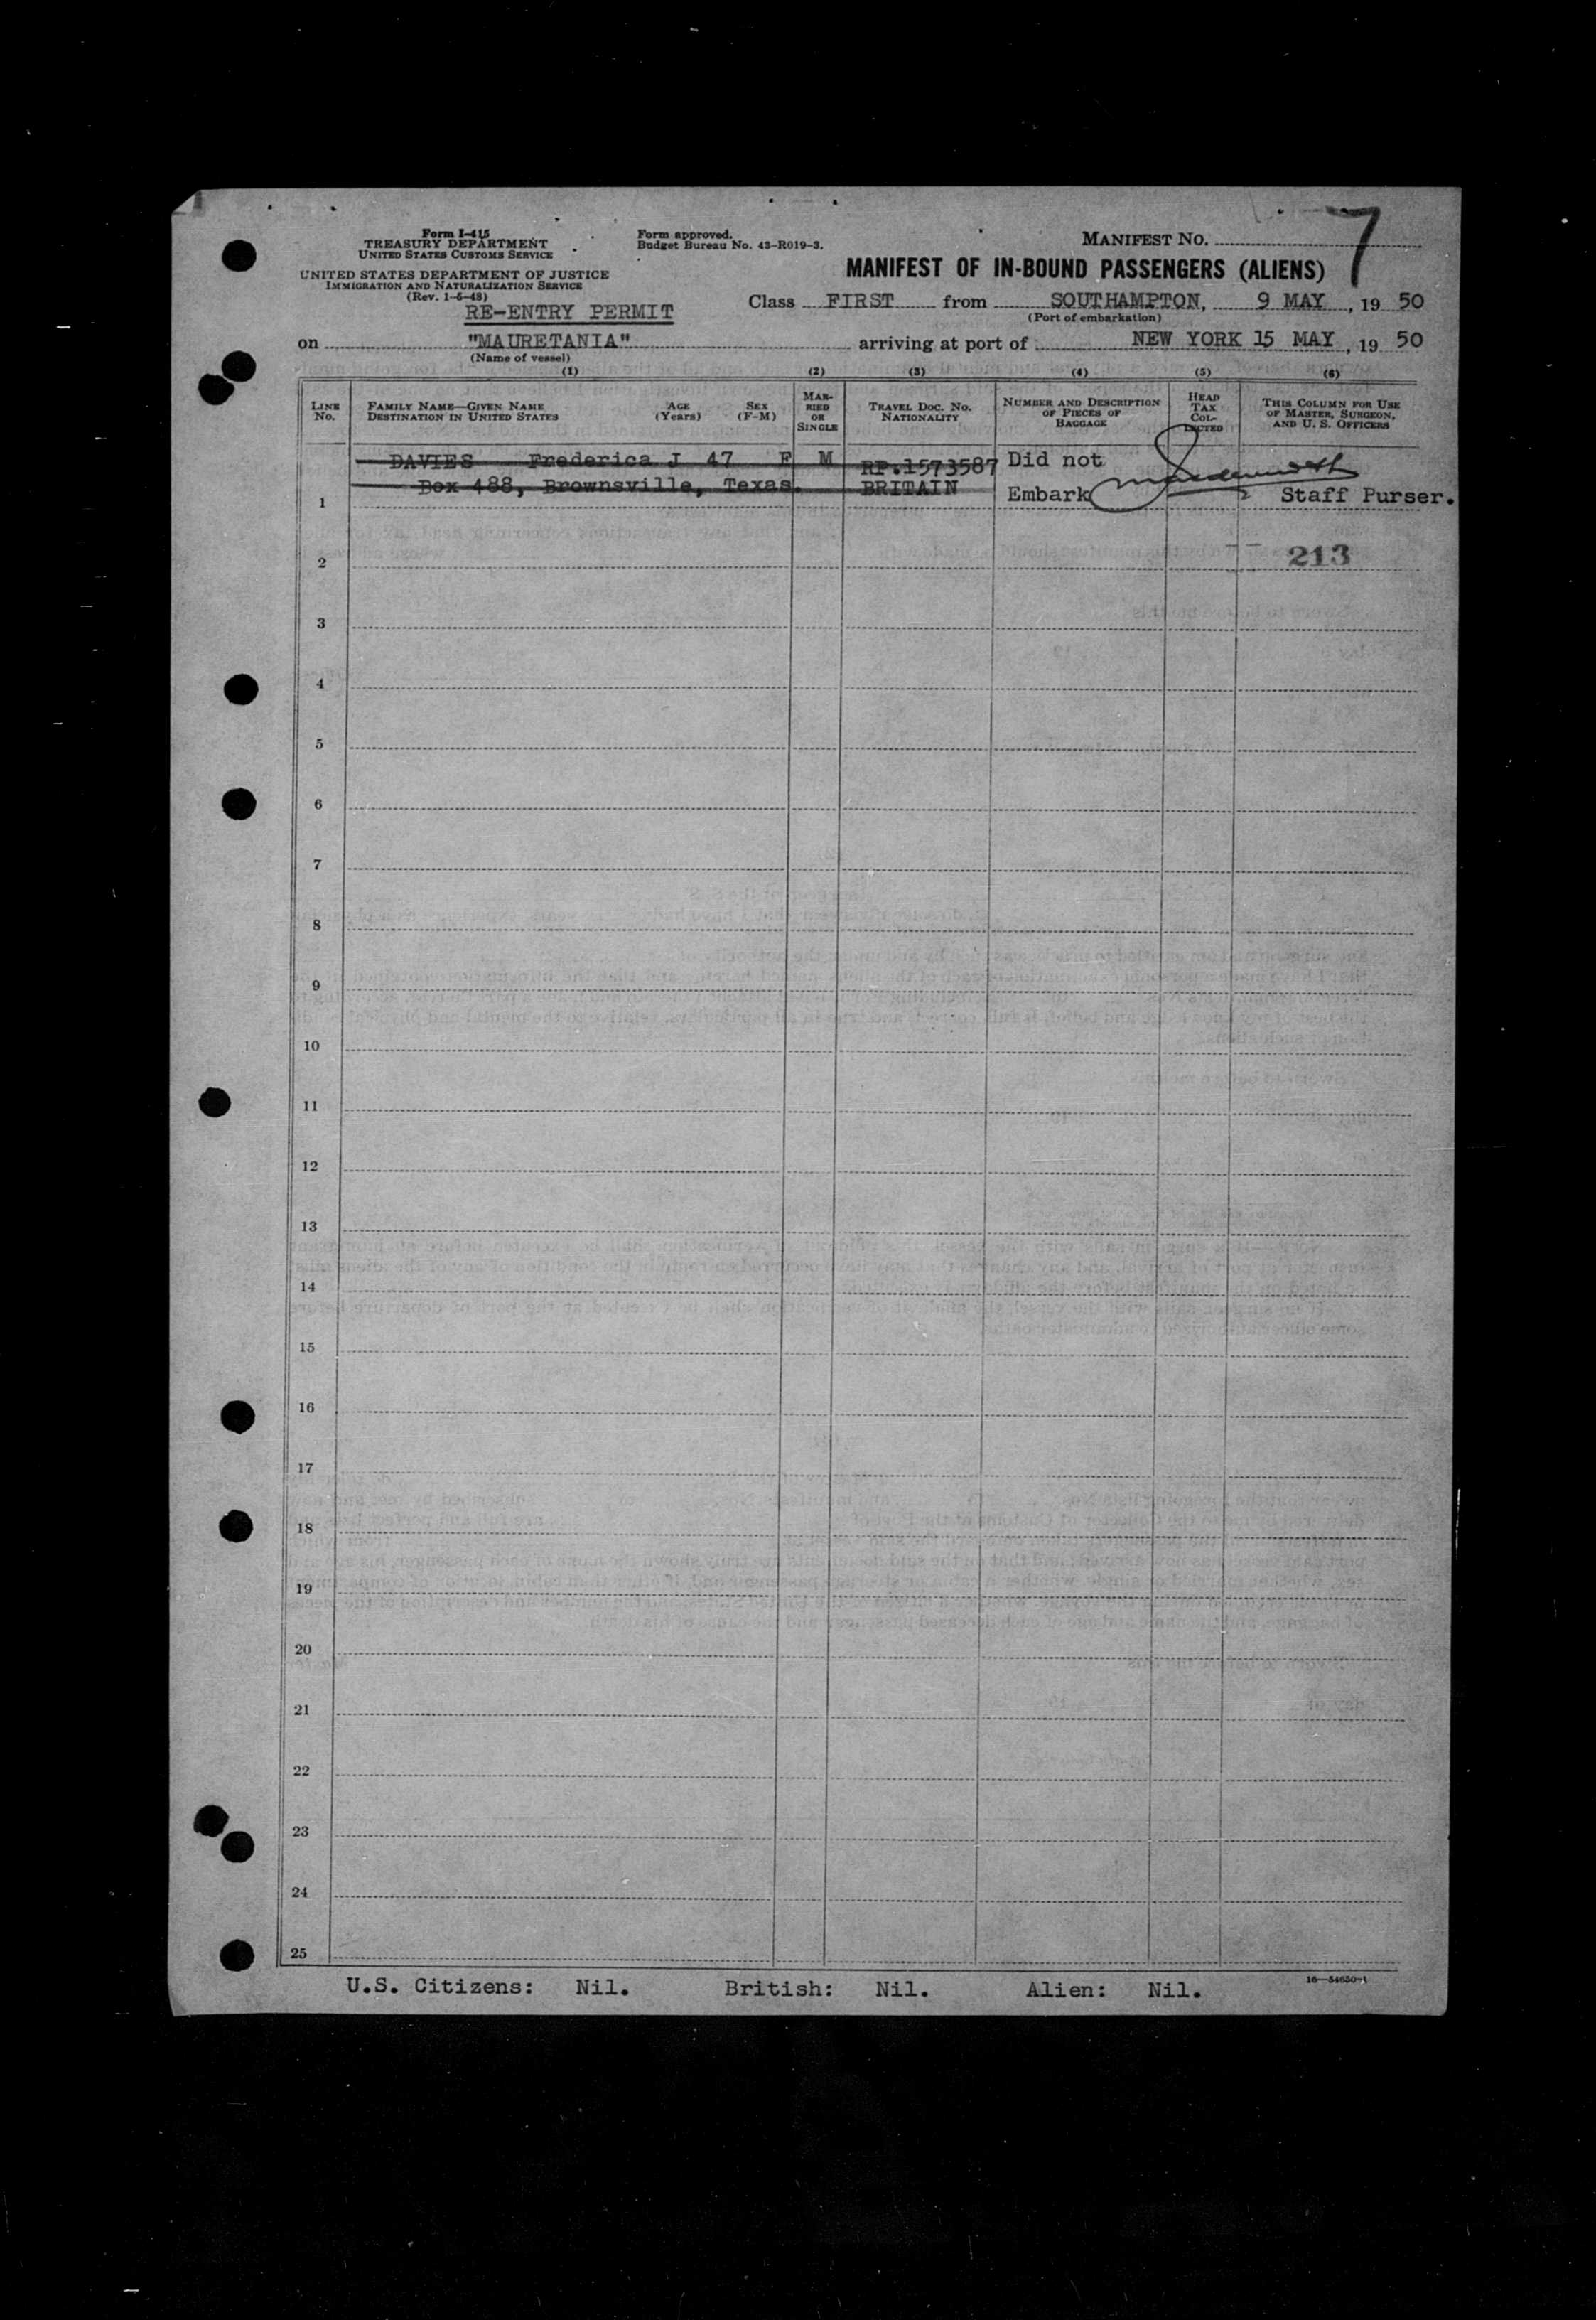 Form I-415
TREASURY DEPARTMENT
UNITED STATES CUSTOMS SERVICE
UNITED STATES DEPARTMENT OF JUSTICE
IMMIGRATION AND NATURALIZATION SERVICE
(Rev. 1-5-48)
Form approved.
Budget Bureau No. 43-R019-3.
MANIFEST NO. 7
MANIFEST OF IN-BOUND PASSENGERS (ALIENS)
RE-ENTRY PERMIT
Class FIRST from SOUTHAMPTON, 9 MAY, 19 50
(Port of embarkation)
on "MAURETANIA" arriving at port of NEW YORK 15 MAY, 19 50
(Name of vessel)
(1) (2) (3) (4) (5) (6)
LINE NO.
FAMILY NAME—GIVEN NAME
DESTINATION IN UNITED STATES
AGE
(Years)
SEX
(F-M)
MARRIED OR SINGLE
TRAVEL DOC. NO.
NATIONALITY
NUMBER AND DESCRIPTION
OF PIECES OF
BAGGAGE
HEAD
TAX
COL-
LECTED
THIS COLUMN FOR USE
OF MASTER, SURGEON,
AND U. S. OFFICERS
DAVIES Frederica J 47 F M RP.1573587 Did not
Box 488, Brownsville, Texas. BRITAIN Embark Staff Purser.
1
2 213
3
4
5
6
7
8
9
10
11
12
13
14
15
16
17
18
19
20
21
22
23
24
25
U.S. Citizens: Nil. British: Nil. Alien: Nil.
16—54650-1